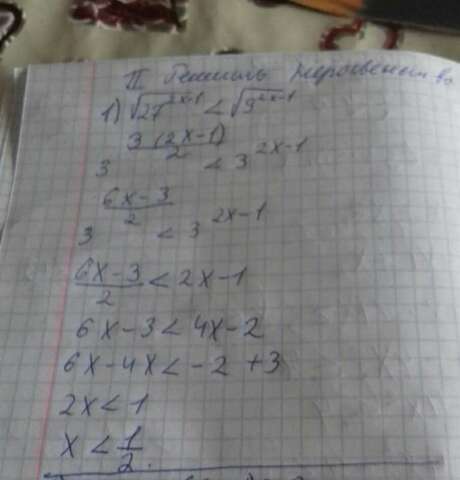 II Решить неравенство
1) √27^(2x-1) < √9^(2x-1)
3^(3(2x-1)/2) < 3^(2x-1)
3^((6x-3)/2) < 3^(2x-1)
(6x-3)/2 < 2x-1
6x-3 < 4x-2
6x-4x < -2 +3
2x < 1
x < 1/2.